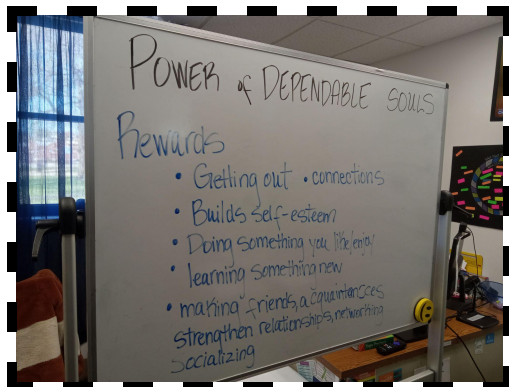 POWER of DEPENDABLE SOULS
Rewards
• Getting out • connections
• Builds self-esteem
• Doing something you like/enjoy
• learning something new
• making friends, acquaintances
strengthen relationships, networking
socializing